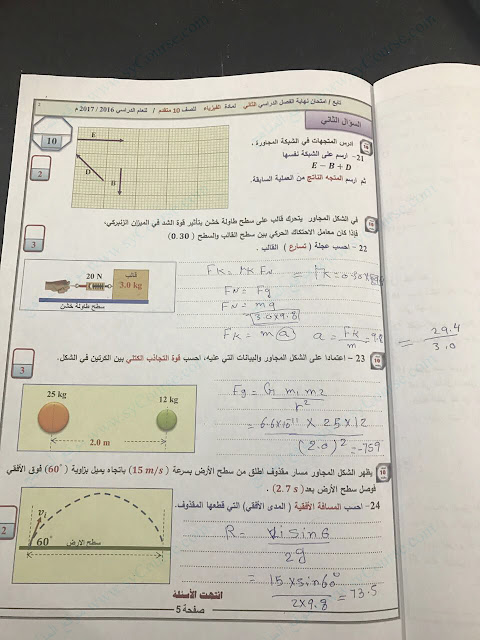 تابع / امتحان نهاية الفصل الدراسي الثاني لمادة الفيزياء للصف 10 متقدم / للعام الدراسي 2016 / 2017 م
السؤال الثاني
10
ادرس المتجهات في الشبكة المجاورة .
21- ارسم على الشبكة نفسها
E − B + D
ثم ارسم المتجه الناتج من العملية السابقة.
E
D
B
2
في الشكل المجاور يتحرك قالب على سطح طاولة خشن بتأثير قوة الشد في الميزان الزنبركي،
فإذا كان معامل الاحتكاك الحركي بين سطح القالب والسطح (0.30)
22 - احسب عجلة ( تسارع ) القالب .
3
20 N
قالب
3.0 kg
سطح طاولة خشن
FN = Fg
FN = mg
3.0 x 9.8
FK = m a a = FK/m = 9.8
= 29.4 / 3.0
23 - اعتمادا على الشكل المجاور والبيانات التي عليه، احسب قوة التجاذب الكتلي بين الكرتين في الشكل.
3
25 kg
12 kg
2.0 m
Fg = G m1 m2 / r²
(2.0)²
يظهر الشكل المجاور مسار مقذوف اطلق من سطح الأرض بسرعة (15 m/s) باتجاه يميل بزاوية (60°) فوق الأفقي
فوصل سطح الأرض بعد (2.7 s) .
24- احسب المسافة الأفقية ( المدى الأفقي) التي قطعها المقذوف.
2
vi
60°
سطح الأرض
2g
= 15 x sin 60° / 2 x 9.8 = 73.5
انتهت الأسئلة
صفحة 5